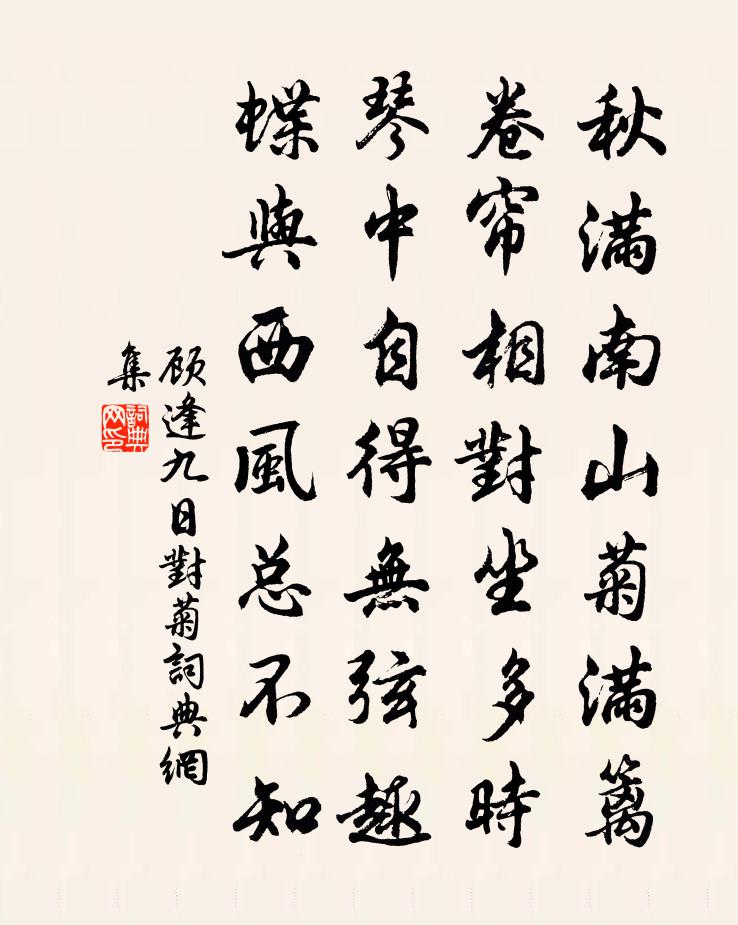 秋满南山菊满篱
卷帘相對坐多時
琴中自得無弦趣
蝶與西風总不知
顾逢九日對菊詞典網
集
詞典
网印